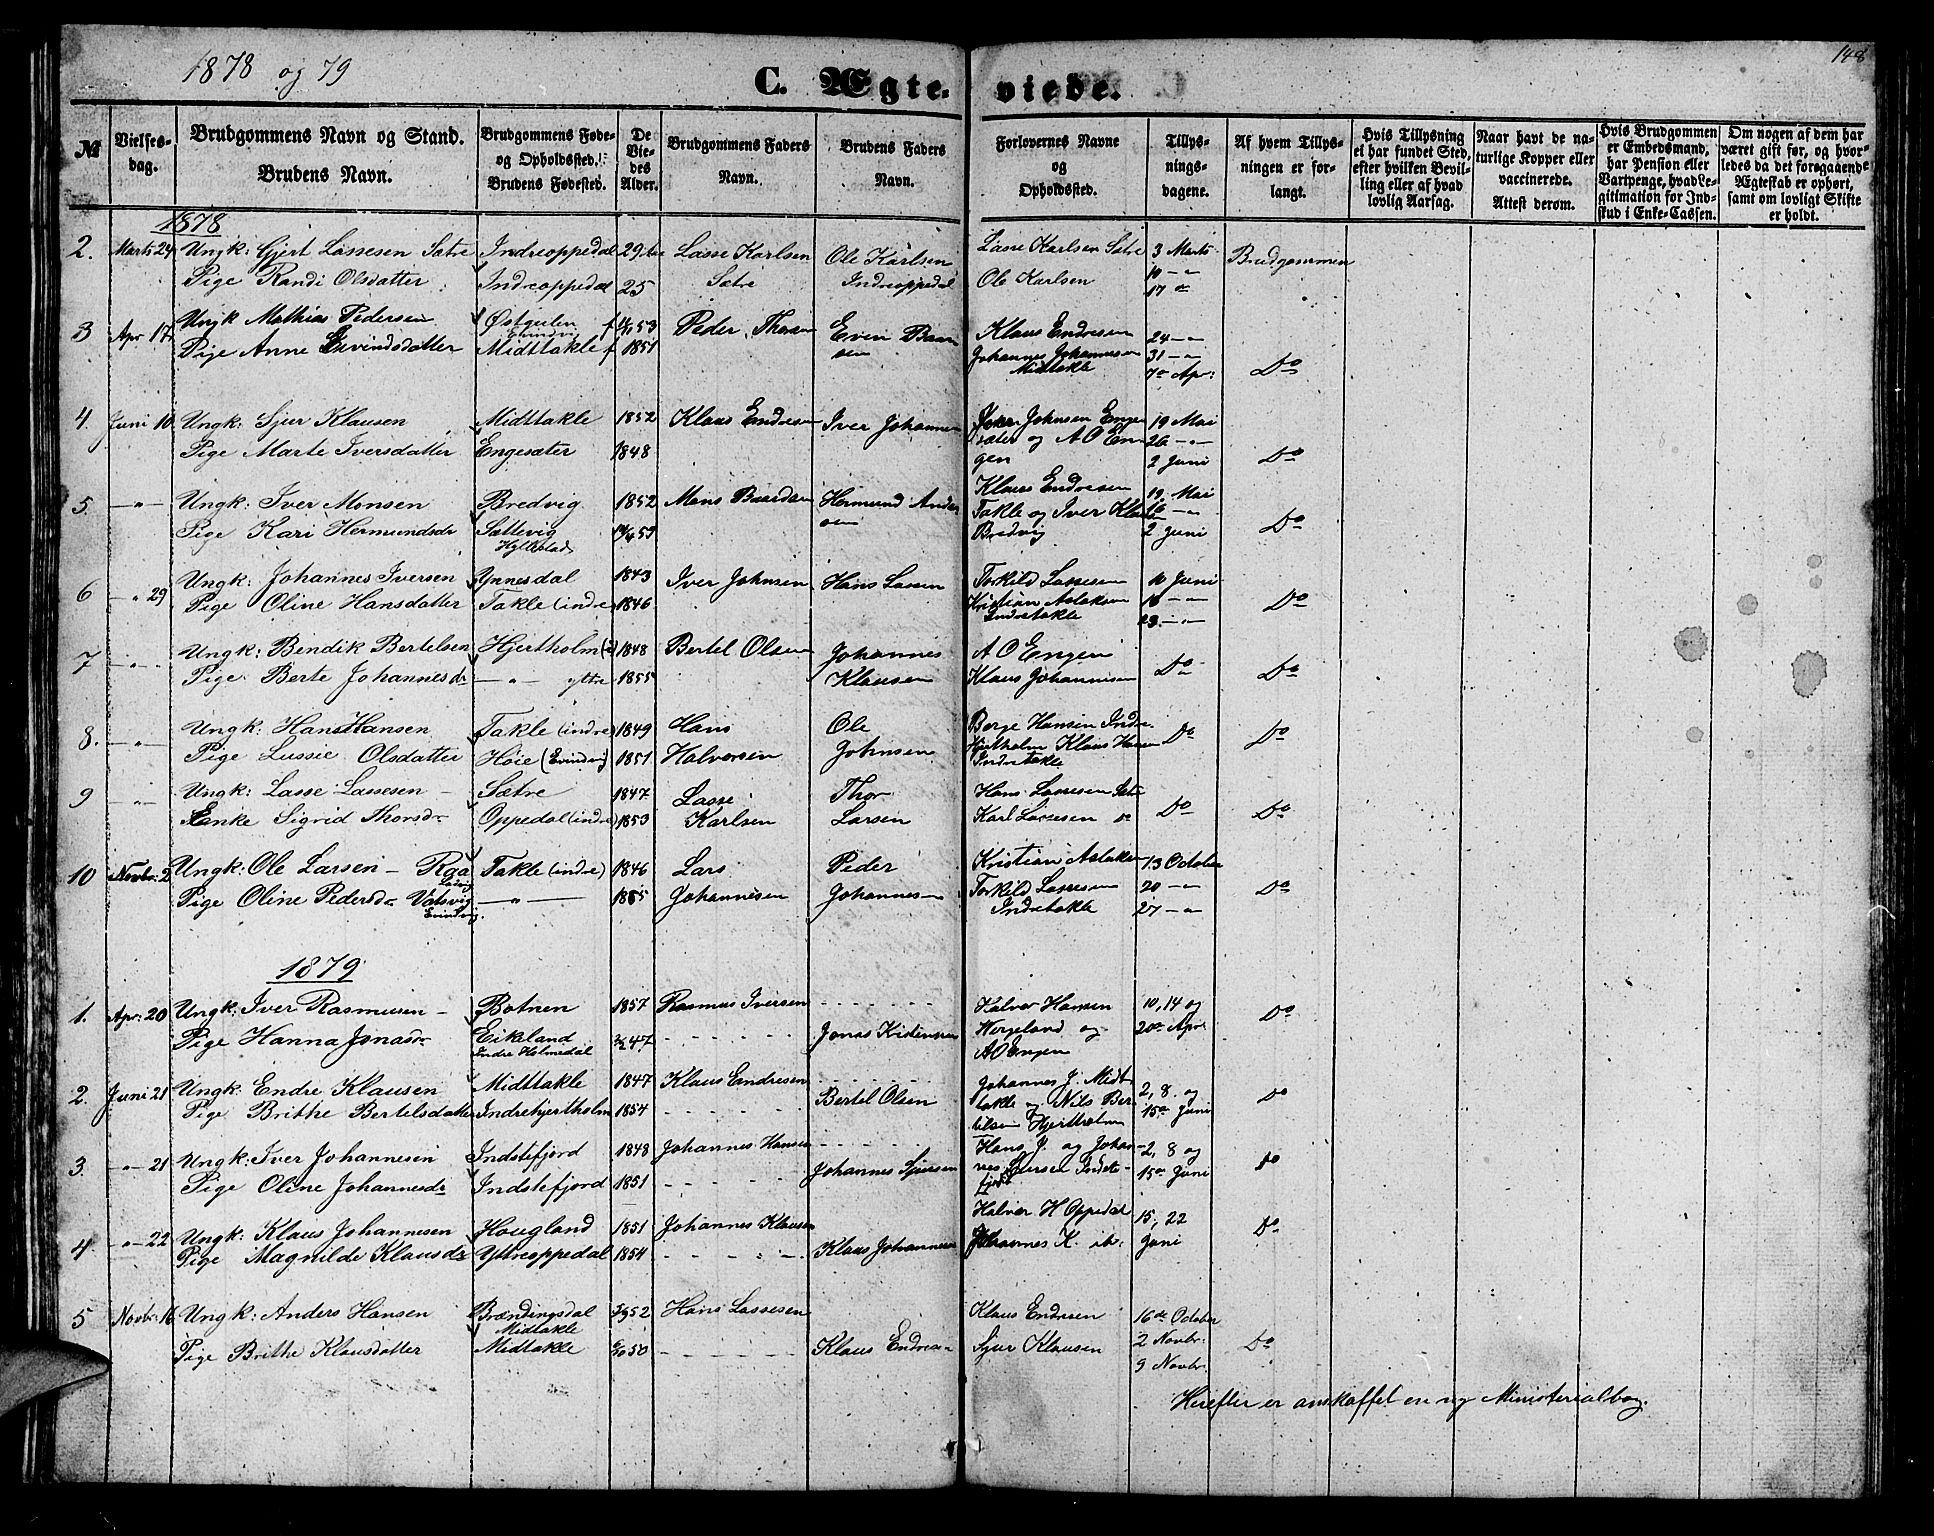 1878 og 79
C. Ægteviede.
148
№
Vielsesdag.
Brudgommens Navn og Stand.
Brudens Navn.
Brudgommens Føde- og Opholdssted.
Brudens Fødested.
De Viedes Alder.
Brudgommens Faders Navn.
Brudens Faders Navn.
Forlovernes Navne og Opholdssted.
Tillysningsdagene.
Af hvem Tillysningen er forlangt.
Hvis Tillysning ei har fundet Sted, efter hvilken Bevilling eller af hvad lovlig Aarsag.
Naar havt de naturlige Kopper eller vaccinerede. Attest derom.
Hvis Brudgommen er Embedsmand, har Pension eller Vartpenge, hvad Legitimation for Indskud i Enke-Cassen.
Om nogen af dem har været gift før, og hvorledes da det foregaaende Ægteskab er ophørt, samt om lovligt Skifte er holdt.
1878
2. Marts 24 Ungk: Gjert Lassesen Sætre Indreoppedal 29 Lasse Karlsen Ole Karlsen Lasse Karlsen Sætre 3 Marts Brudgommen
Pige Randi Olsdatter Indreoppedal 25 Sætre Indreoppedal Ole Karlsen 10 -"-
17 de
3 Apr 17 Ungk Mathias Pedersen Østgulen f 53 Peder Thoresen Even Baardsen Klaus Endresen 24 -"-
Pige Anne Eivindsdatter Midttakle f 1851 Johannes Johannesen 31 -"-
Midtakle 7de Apr: Do
4. Juni 10 Ungk: Sjur Klausen Midttakle 1852 Klaus Endresen Iver Johannesen Johnsen Enge- 19 Mai
Pige Marte Iversdatter Engesæter 1848 sæter og A O En- 26 -"-
gen 2 Juni Do
5. -"- Ungk: Iver Monsen Bredvig 1852 Mons Baardsen Hermund Andersen Klaus Endresen 19 Mai
Pige Kari Hermundsdr Sættevig 53 Takle og Iver Klausen 26 -"-
Hyllestad Bredvig 2 Juni Do
6 -"- 29 Ungk: Johannes Iversen Ynnesdal 1843 Iver Johnsen Hans Lassen Torkild Lassesen 10 Juni
Pige Oline Hansdatter Takle (indre) 1846 Kristian Aslaksen 16 -"- Do
Indretakle 23. -"-
7 -"- Ungk: Bendik Bertelsen Hjertholm (i) 1848 Bertel Olsen Johannes A O Engen
Pige Berte Johannesdr -"- ytre 1855 Klausen Klaus Johannesen Do Do
8. -"- Ungk: Hans Hansen Takle (indre) 1849 Hans Ole Børge Hansen Indre-
Pige Lussie Olsdatter Høie (Evindvig) 1851 Halvorsen Johnsen Hjertholm Klaus Hansen Do Do
Indretakle
9 -"- Ungk: Lasse Lassesen - Sætre 1847 Lasse Thor Hans Lassesen Sætre
Enke Sigrid Thorsdr Oppedal (indre) 1853 Karlsen Larsen Karl Lassesen do Do Do
10 Novbr: 2 Ungk: Ole Larsen - Raa Takle (indre) 1846 Lars Peder Kristian Aslaksen 13 October
Ladvig
Pige Oline Pedersdr Vatsvig -"- 1855 Johannesen Johannesen Torkild Lassesen 20 -"- Do
Evindvig. Indretakle 27 -"-
1879
1. Apr: 20 Ungk: Iver Rasmusen - Botnen 1857 Rasmus Iversen - - - - Halvor Hansen 10, 14 og Do
Pige Hanna Jonasdr Eikland 47 - - - - Jonas Kistensen Værgeland og 20de Apr:
Indre Holmedal A O Engen
2. Juni 21 Ungk: Endre Klausen Midttakle 1847 Klaus Endresen - - - - Johannes J. Midt-
Pige Brithe Bertelsdatter Indrehjertholm 1854 - - - - Bertel Olsen takle og Nils Ber- 2, 8. og Do
telsen Hjertholm 15de Juni
3. -"- 21 Ungk: Iver Johannesen Indstefjord 1848 Johannes Hansen - - - - Hans J. og Johan- 2, 8 og
Pige Oline Johannesdr Indstefjord 1851 - - - - Johannes Sjursen nes Sjursen Indste- 15de Juni Do
fjord
4 -"- 22 Ungk: Klaus Johannesen Haugland 1851 Johannes Klausen Halvor H Oppedal 15, 22
Pige Magnilde Klausdr Ytreoppedal 1854 - - - - Klaus Johannesen Johannes K. ib: Juni Do
5 Novbr: 16 Ungk: Anders Hansen Brændingsdal 52 Hans Lassesen Klaus Endresen 16de October
Midtakle 2 Novbr:
Pige Brithe Klausdatter Midttakle 50 - - - - Klaus Endresen Sjur Klausen 9 Novbr: Do
Herefter er anskaffet en ny Ministerialbog.